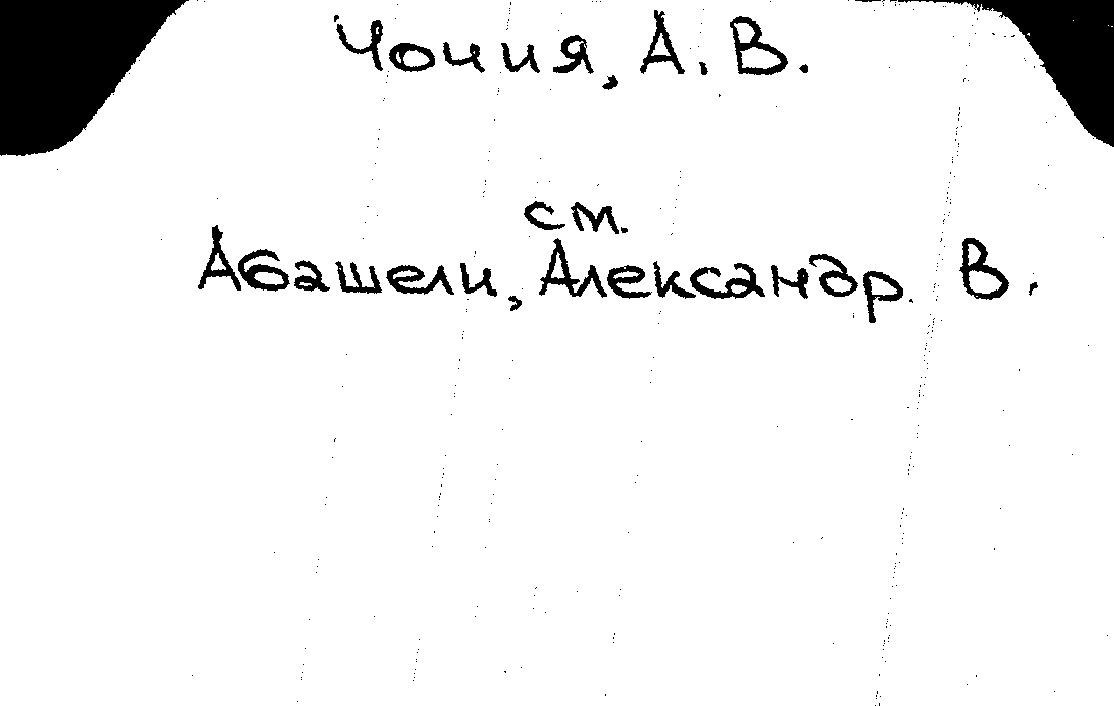 Чочия, А. В.
ст.
Абашели, Александр В.